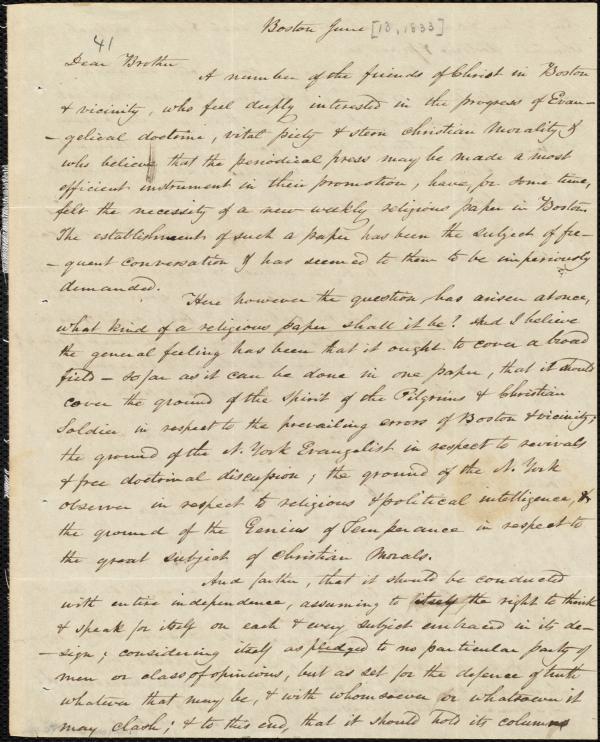 Boston June [13, 1833]
41
Dear Brother
A number of the friends of Christ in Boston
& vicinity, who feel deeply interested in the progress of Evan-
-gelical doctrine, vital piety & stern Christian Morality, &
who believe that the periodical press may be made a most
efficient instrument in their promotion, have, for some time,
felt the necessity of a new weekly religious paper in Boston.
The establishment of such a paper has been the subject of fre-
-quent conversation & has seemed to them to be imperiously
demanded.
Here however the question has arisen at once,
what kind of a religious paper shall it be? And I believe
the general feeling has been that it ought to cover a broad
field - so far as it can be done in one paper, that it should
cover the ground of the Spirit of the Pilgrims & Christian
Soldier in respect to the prevailing errors of Boston & vicinity;
the ground of the N. York Evangelist in respect to revivals
& free doctrinal discussion; the ground of the N. York
observer in respect to religious & political intelligence, &
the ground of the Genius of Temperance in respect to
the great subject of Christian Morals.
And farther, that it should be conducted
with entire independence, assuming to itself the right to think
& speak for itself on each & every subject embraced in its de-
-sign; considering itself as pledged to no particular party of
men or class of opinions, but as set for the defence of truth
whatever that may be, & with whomsoever or whatsoever it
may clash; & to this end, that it should hold its columns